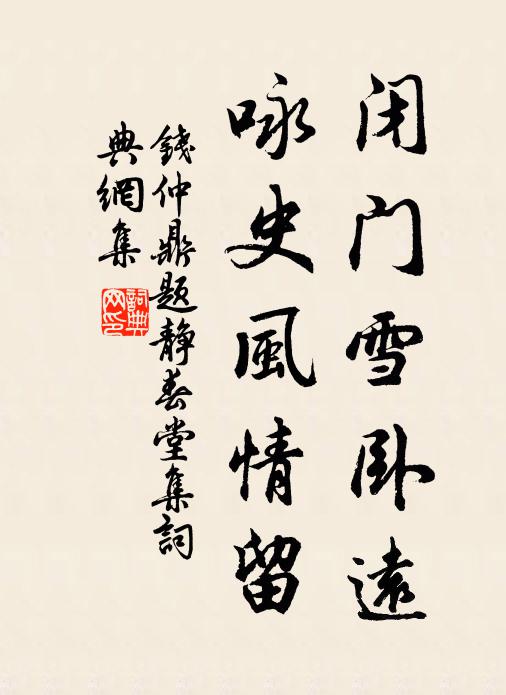 闭门雪卧遠
咏史風情留
錢仲鼎题静春堂集詞
典網集
詞典网印